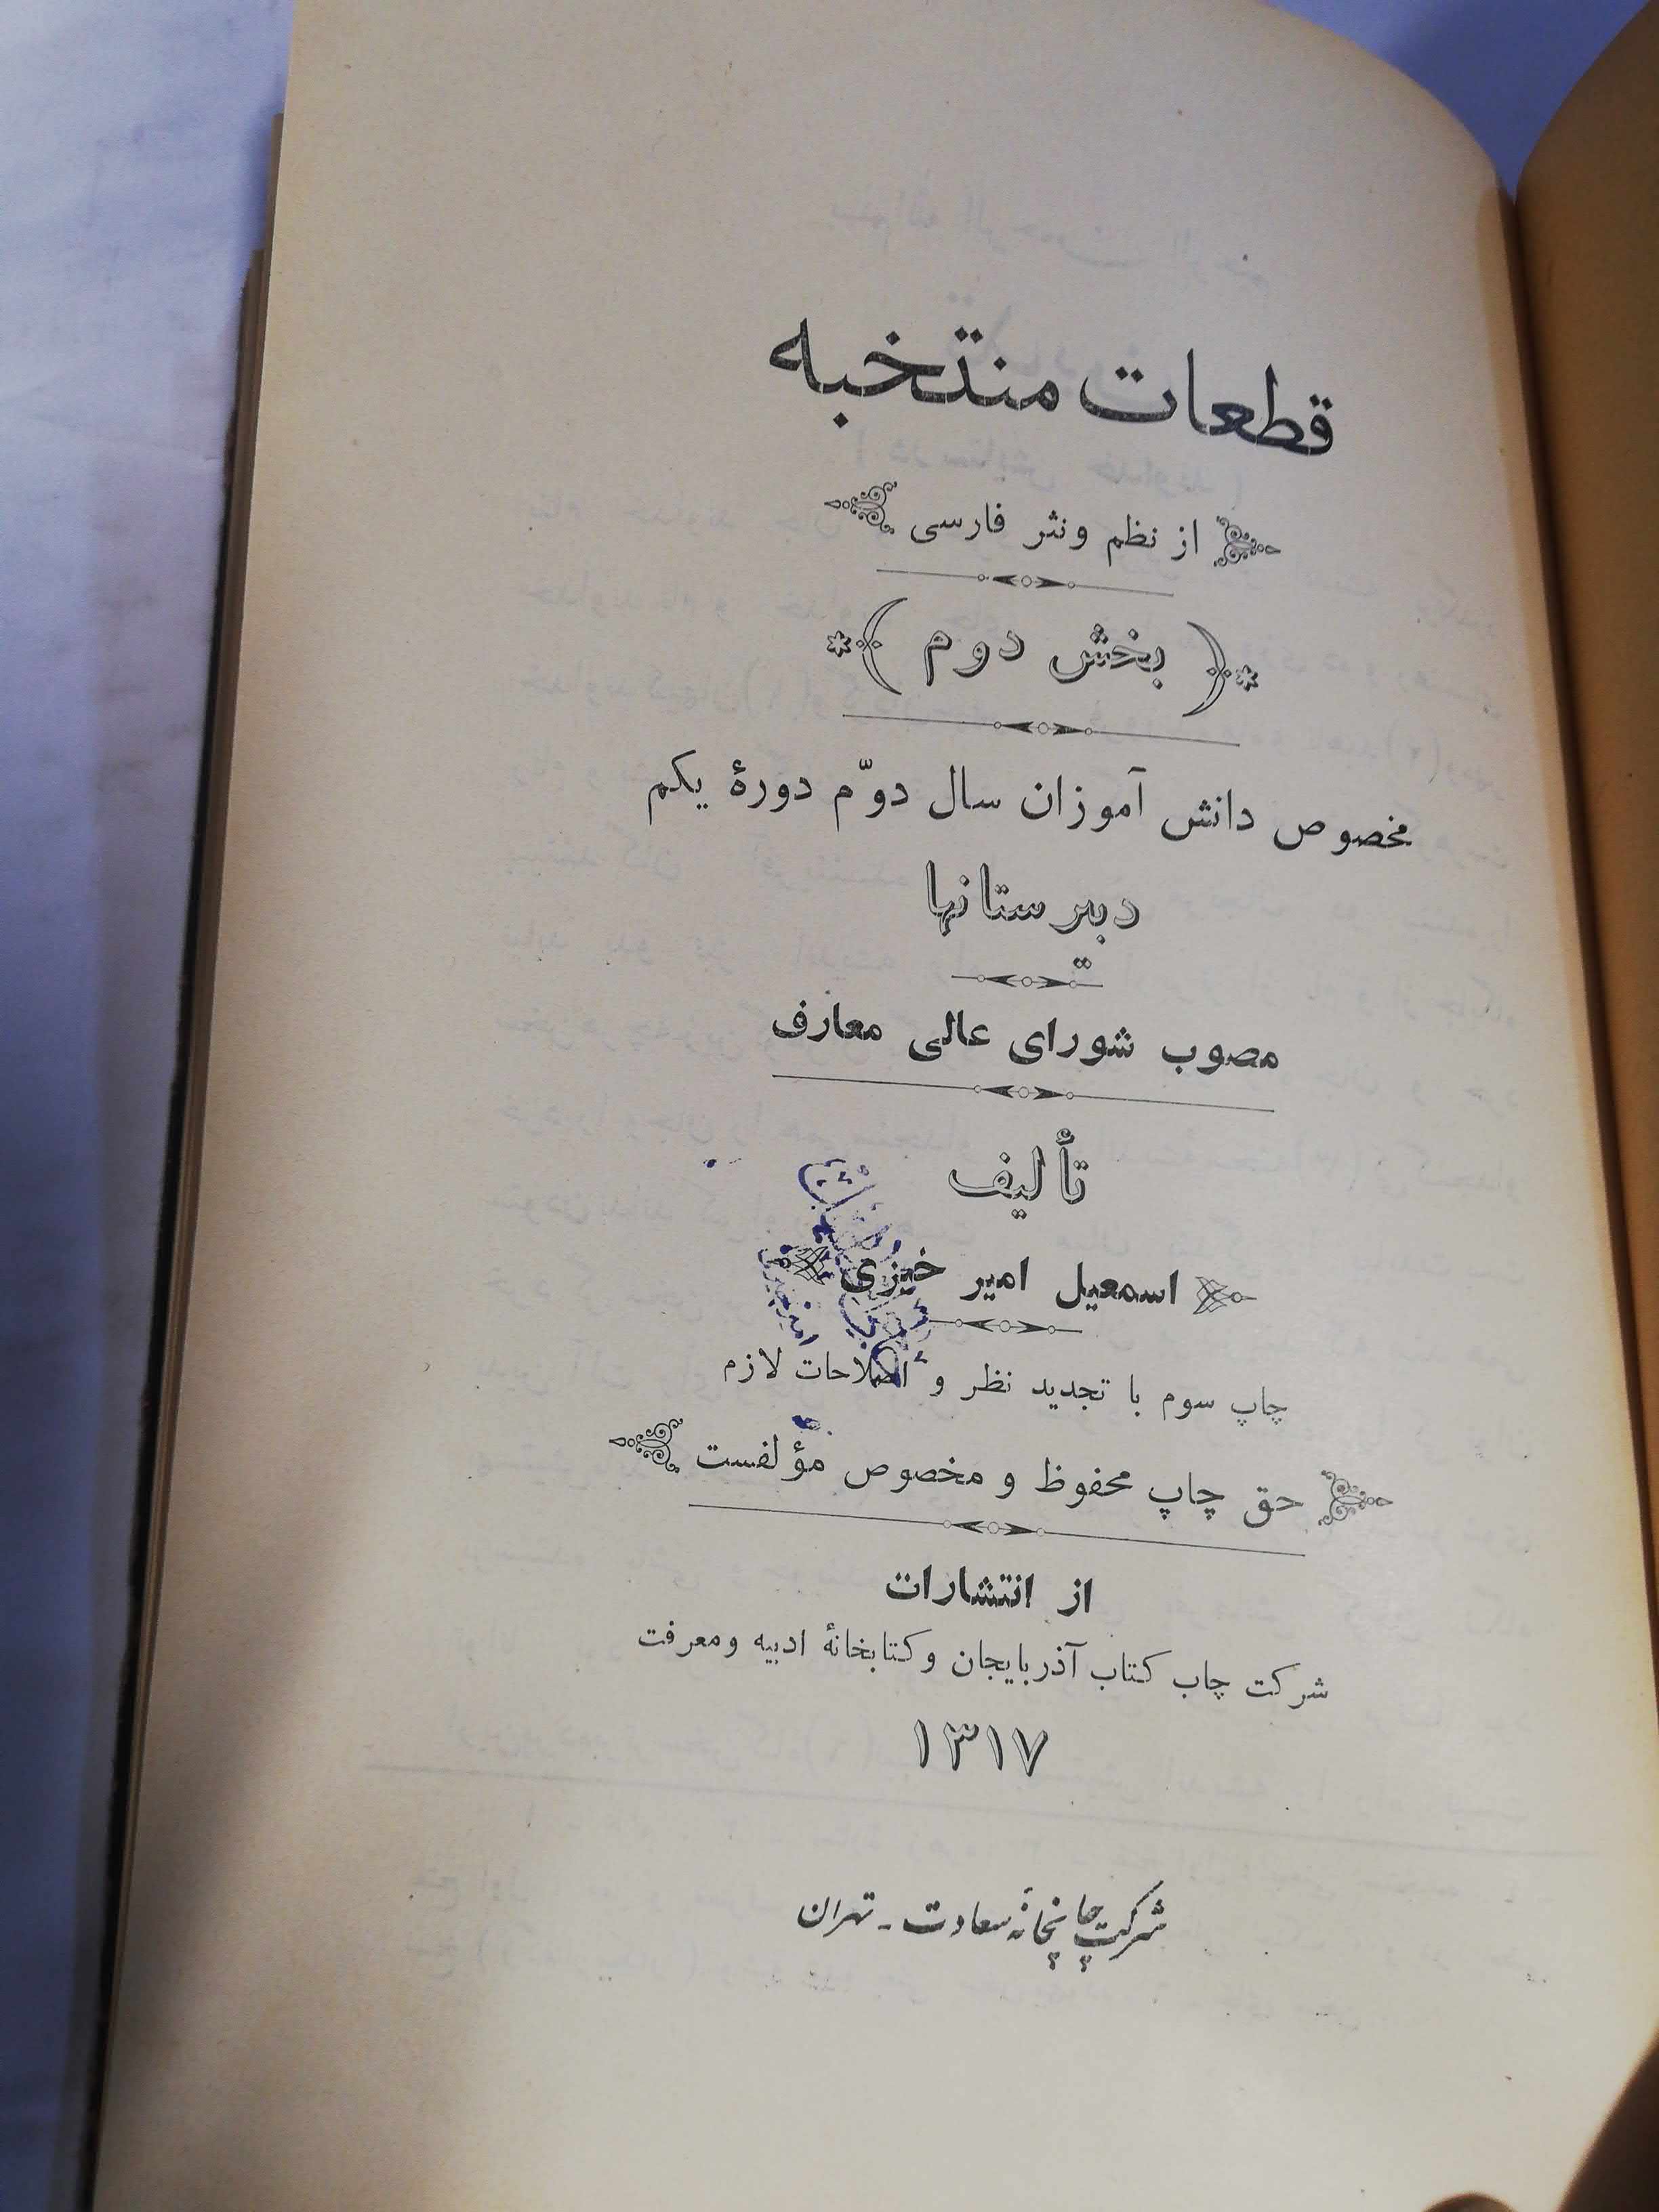 قطعات منتخبه
از نظم ونثر فارسی
( بخش دوم )
مخصوص دانش آموزان سال دوّم دورۀ یکم
دبیرستانها
مصوب شورای عالی معارف
تألیف
اسمعیل امیر خیزی
چاپ سوم با تجدید نظر و اصلاحات لازم
حق چاپ محفوظ و مخصوص مؤلفست
از انتشارات
شرکت چاب کتاب آذربایجان وکتابخانۀ ادبیه ومعرفت
۱۳۱۷
شرکت چاپخانۀ سعادت - تهران